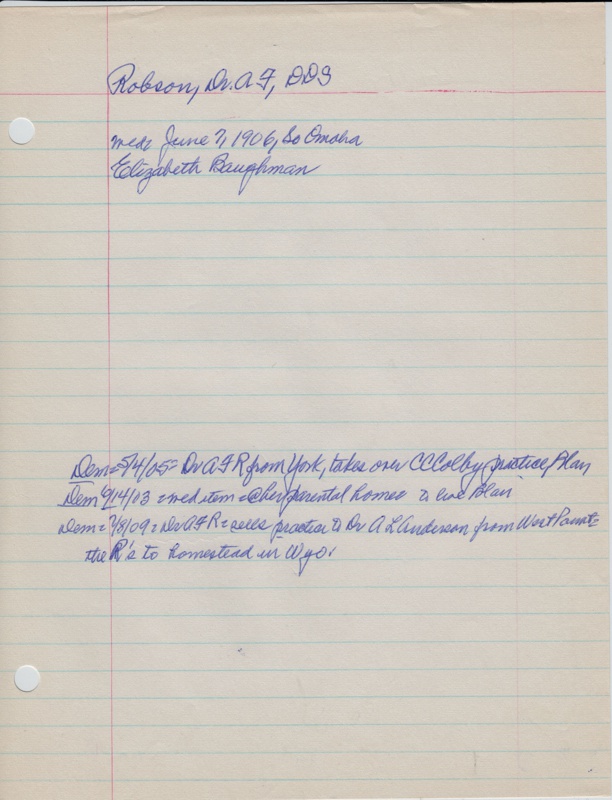 Robson, Dr. A F, DDS
med: June 7, 1906, So Omaha
Elizabeth Baughman
Dem = 5/4/05 = Dr A F R from York, takes over CC Colby practice, Blair
Dem 9/14/03 = wed item = @ her parental home = to live Blair
Dem = 7/8/09 = Dr A F R = sells practice to Dr A L Anderson from West Point =
the R's to homestead in Wyo.